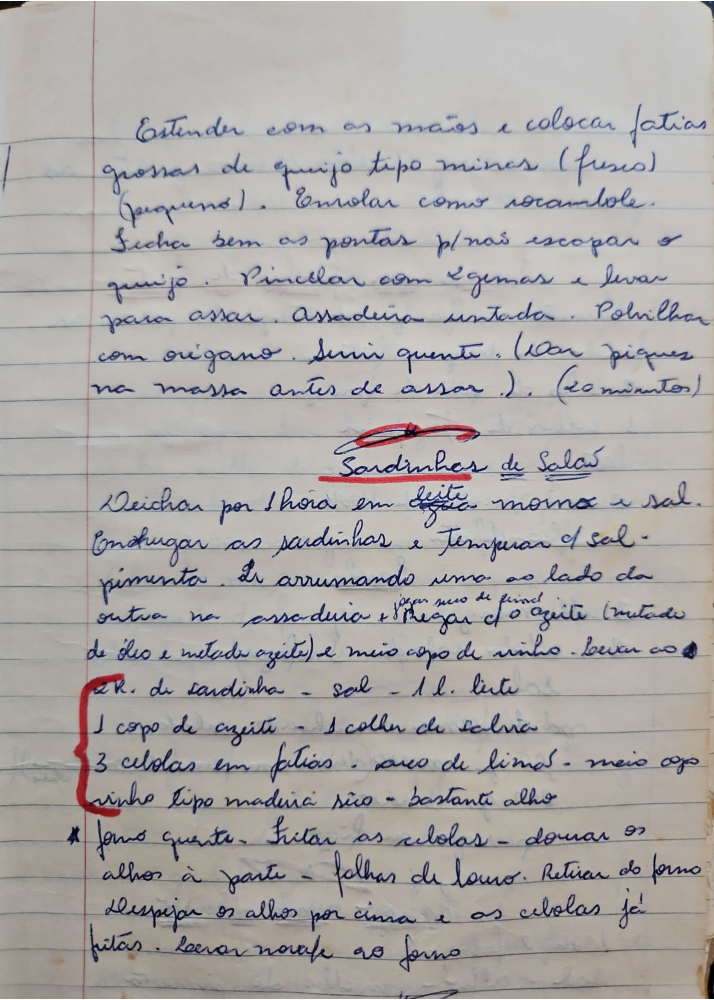 Estender com as mãos e colocar fatias
grossas de queijo tipo minas (fresco)
(pequeno). Enrolar como rocambole.
Fecha bem as pontas p/ não escapar o
queijo. Pincelar com 2 gemas e levar
para assar. Assadeira untada. Polvilhar
com orégano. Servir quente. (Dar piques
na massa antes de assar.). (20 minutos)
Sardinhas de Salaõ
Deichar por 1 hora em leite morno e sal.
Enchugar as sardinhas e temperar c/ sal-
pimenta. Ir arrumando uma ao lado da
outra na assadeira e jogar suco de limaõ Regar c/ o azeite (metade
de óleo e metade azeite) e meio copo de vinho. Levar ao *
2K. de sardinha - sal - 1 l. leite
1 copo de azeite - 1 colher de salvia
3 cebolas em fatias. suco de limaõ - meio copo
vinho tipo madeira sêco - bastante alho
* forno quente. Fritar as cebolas - dourar os
alhos à parte - folhas de louro. Retirar do forno
Despejar os alhos por cima e as cebolas já
fritas. Levar ao forno